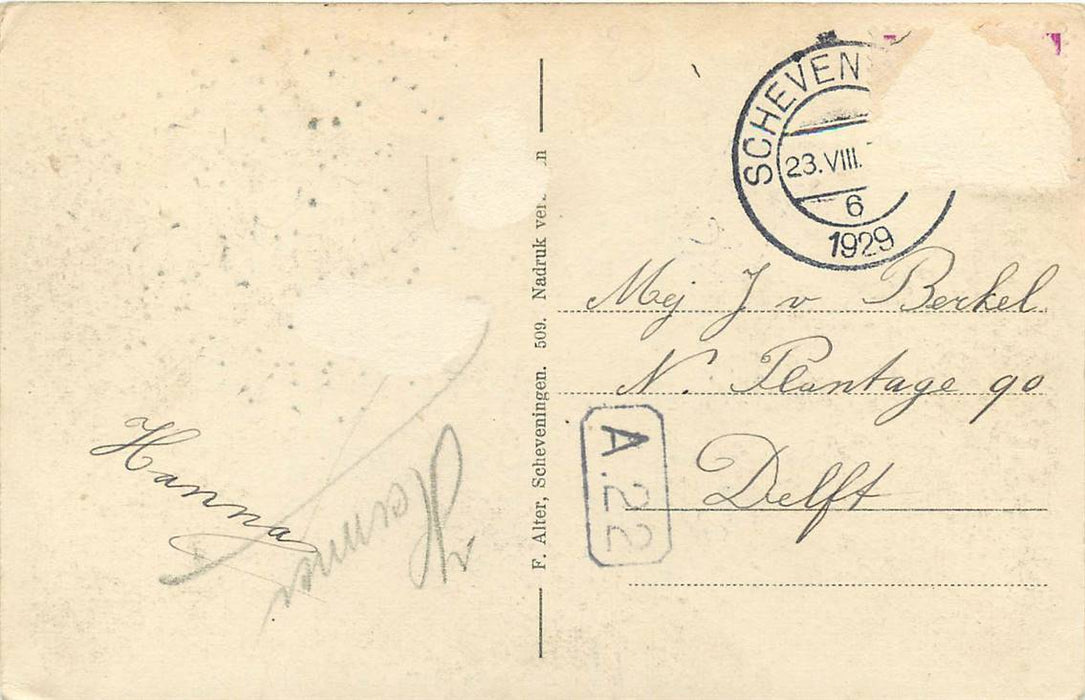 SCHEVEN
23.VIII.
6
1929
Mej J v Berkel
N. Plantage 90
Delft
A.22
F. Alter, Scheveningen. 509. Nadruk ver
Hanna